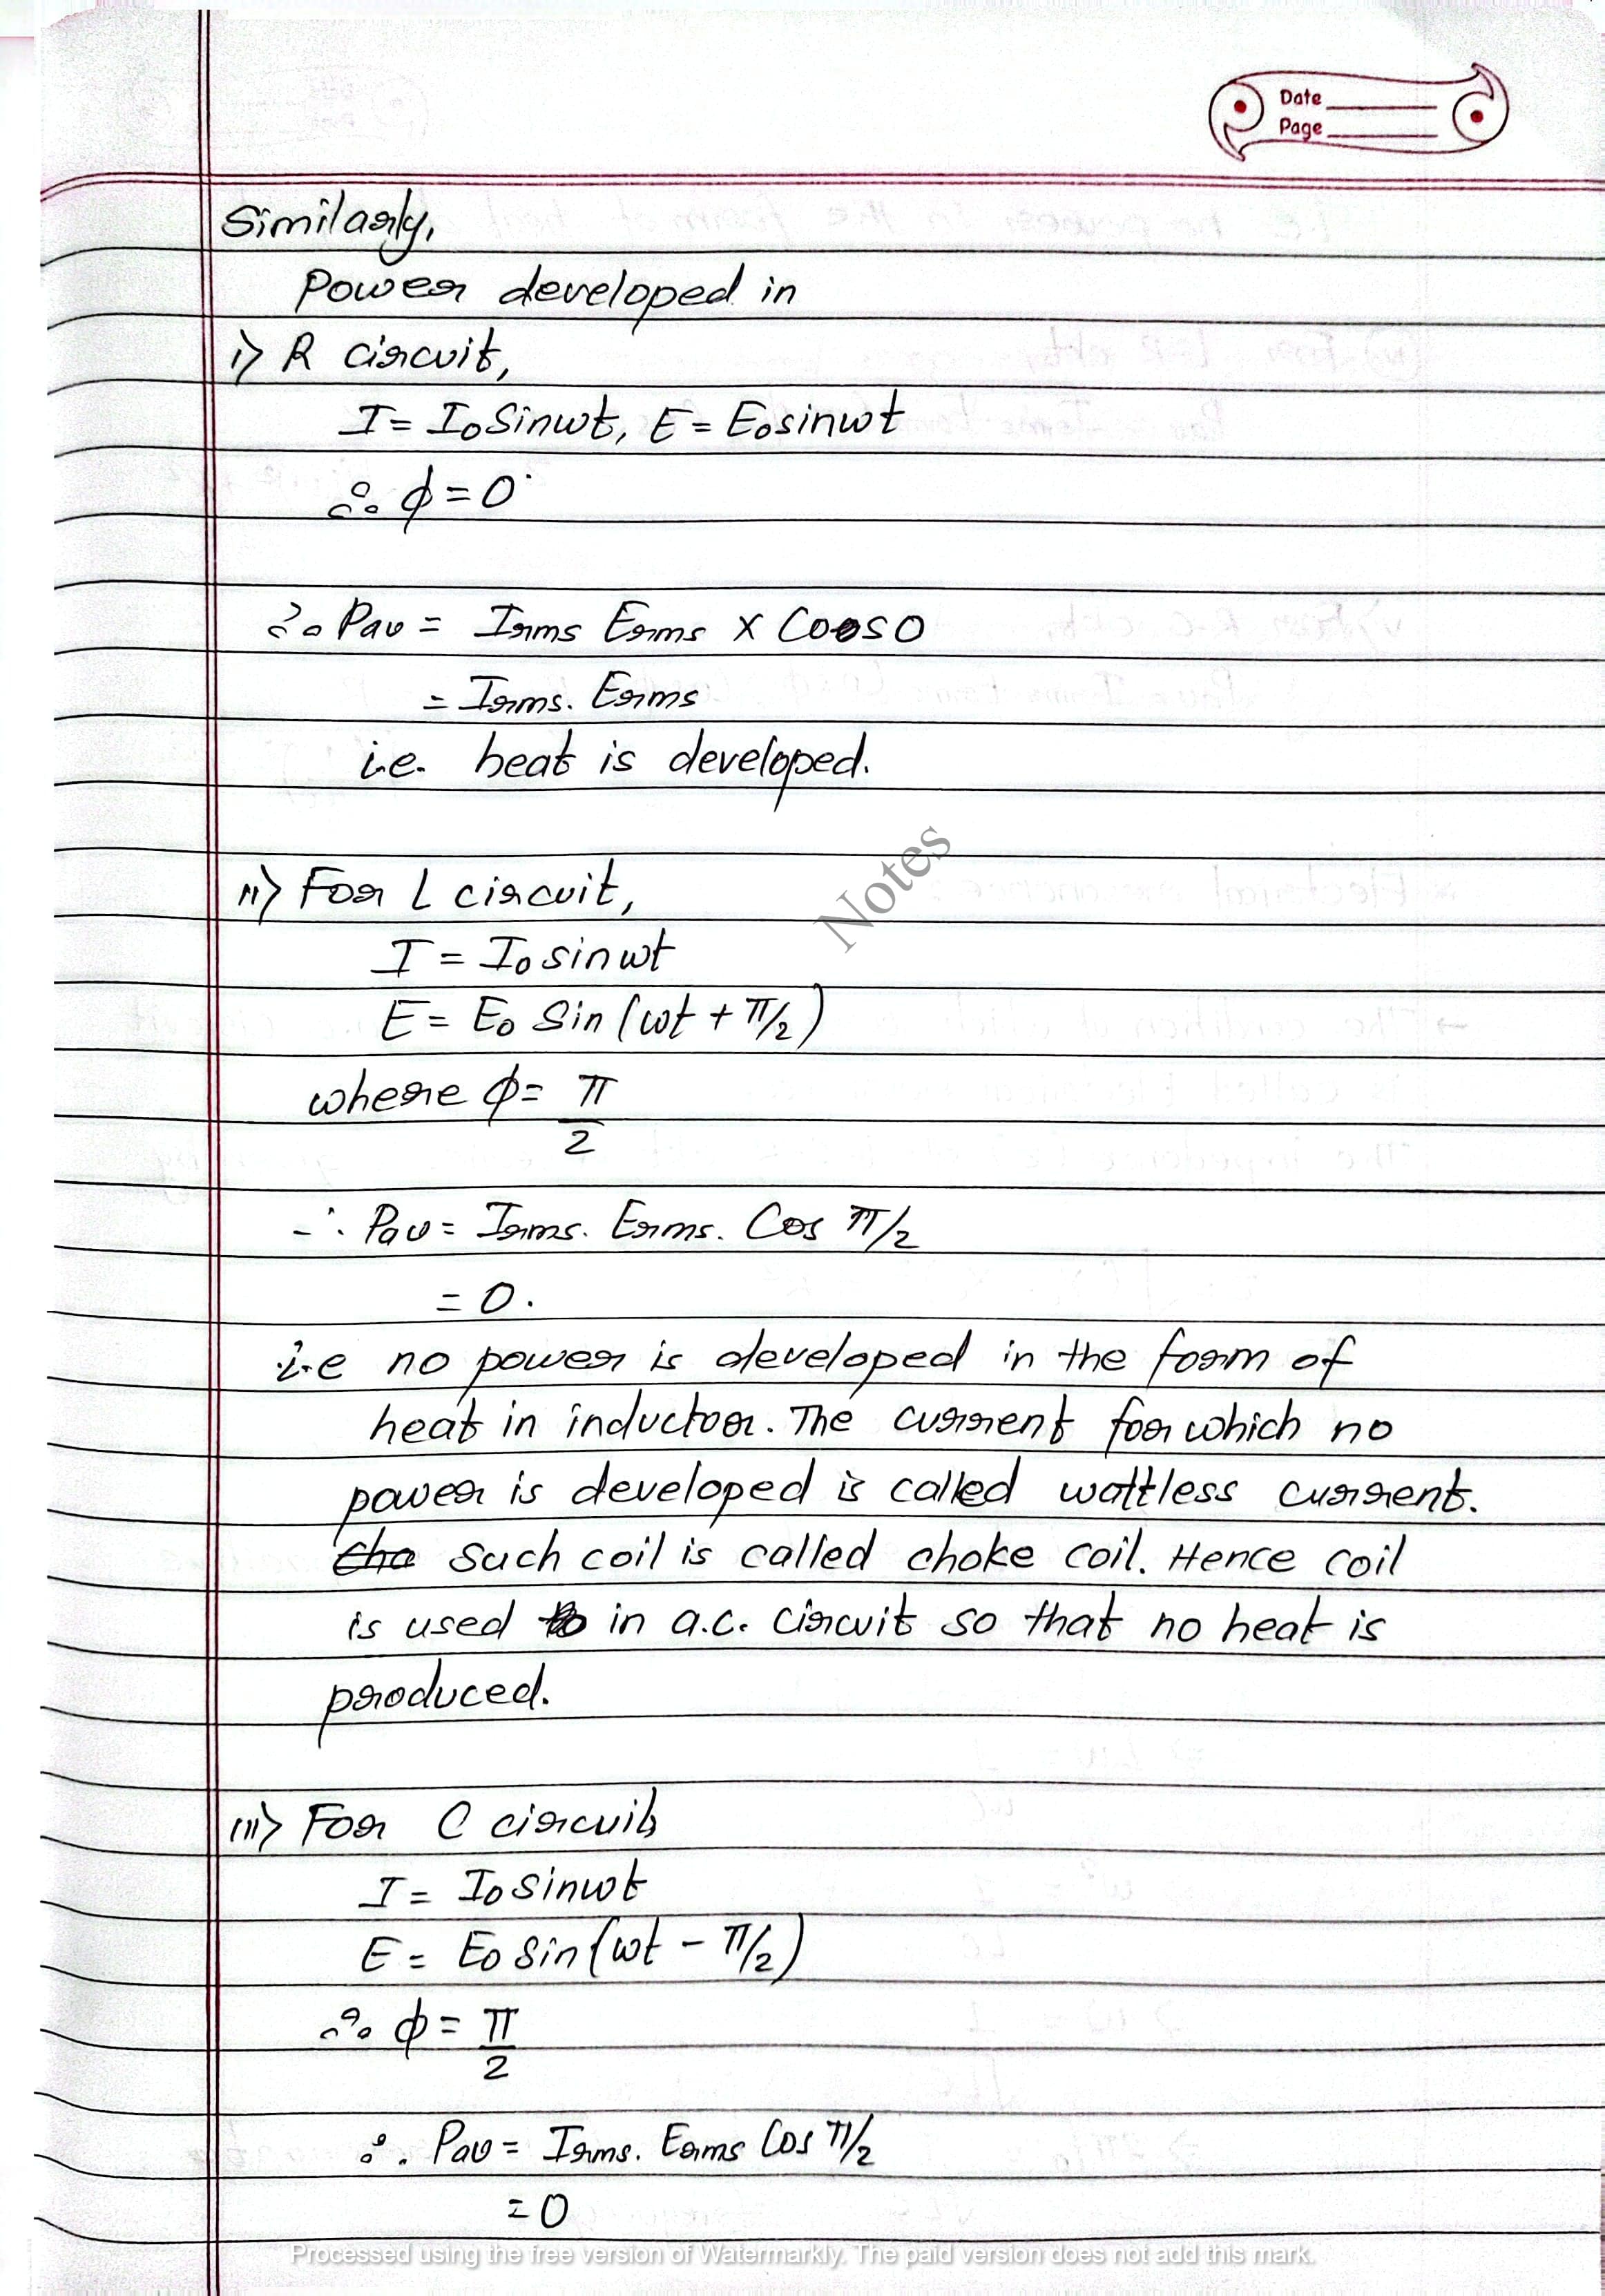 Date
Page
Similarly,
Power developed in
i) R circuit,
I = I₀ Sinωt, E = E₀sinωt
∴ ϕ = 0
∴ Pav = Irms Erms × Cos0
= Irms. Erms
i.e. heat is developed.
Notes
ii) For L circuit,
I = I₀ sinωt
E = E₀ Sin (ωt + π/2)
where ϕ = π/2
∴ Pav = Irms. Erms. Cos π/2
= 0.
i.e no power is developed in the form of
heat in inductor. The current for which no
power is developed is called wattless current.
Such coil is called choke coil. Hence coil
is used in a.c. circuit so that no heat is
produced.
iii) For C circuit,
I = I₀ sinωt
E = E₀ sin(ωt - π/2)
∴ ϕ = π/2
∴ Pav = Irms. Erms Cos π/2
= 0
Processed using the free version of Watermarkly. The paid version does not add this mark.